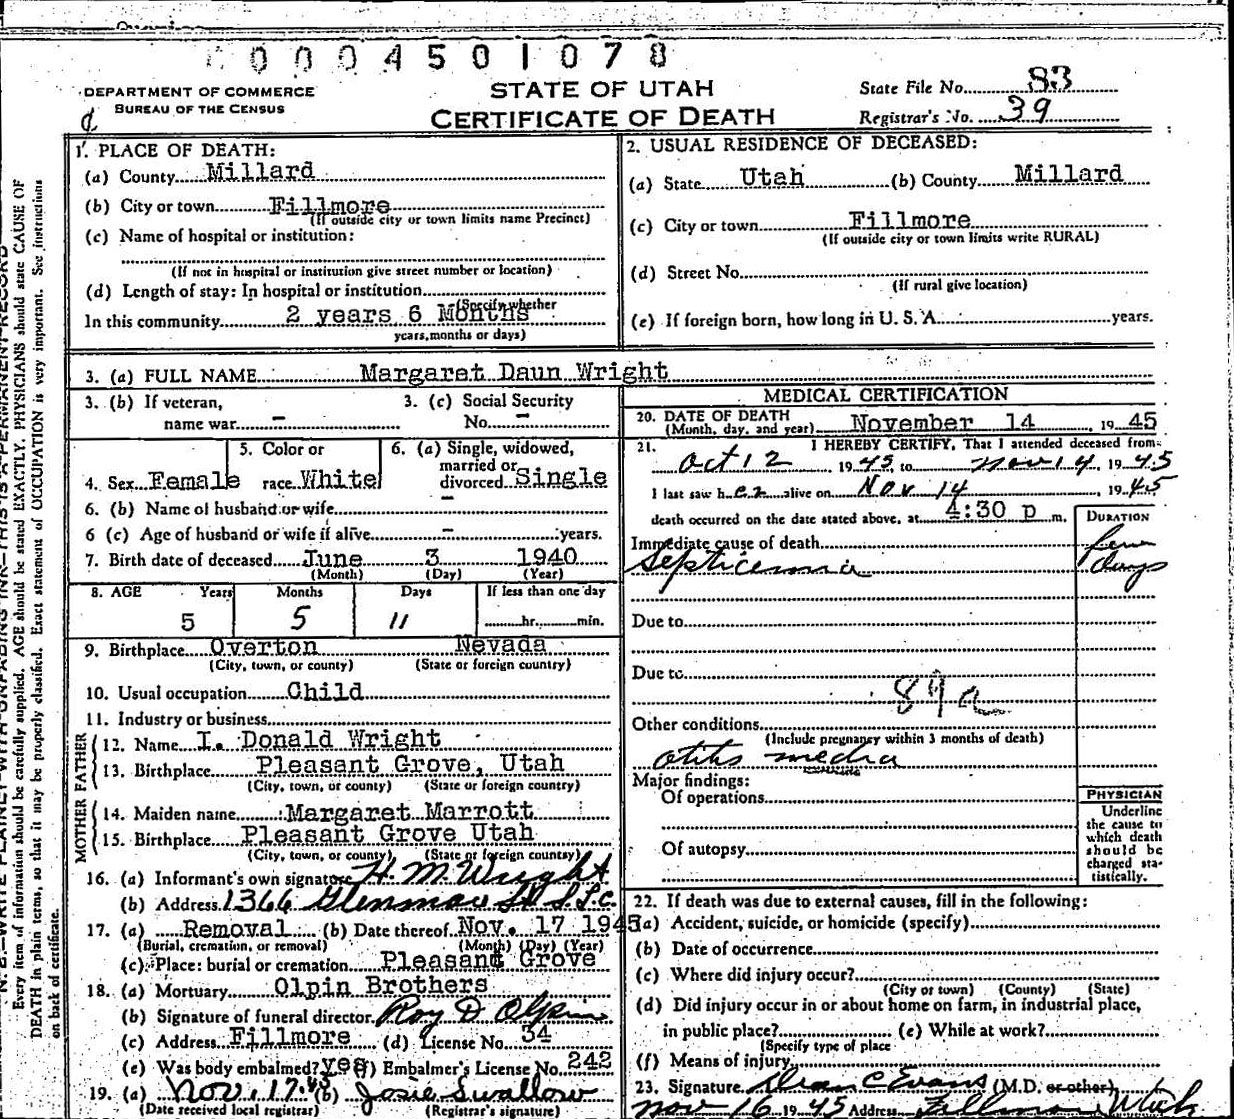 0004501078
DEPARTMENT OF COMMERCE
BUREAU OF THE CENSUS
STATE OF UTAH
CERTIFICATE OF DEATH
State File No. 83
Registrar's No. 39
1. PLACE OF DEATH:
(a) County Millard
(b) City or town Fillmore
(If outside city or town limits name Precinct)
(c) Name of hospital or institution:
(If not in hospital or institution give street number or location)
(d) Length of stay: In hospital or institution
(Specify whether
In this community 2 years 6 Months
years, months or days)
2. USUAL RESIDENCE OF DECEASED:
(a) State Utah (b) County Millard
(c) City or town Fillmore
(If outside city or town limits write RURAL)
(d) Street No.
(If rural give location)
(e) If foreign born, how long in U. S. A. years.
3. (a) FULL NAME Margaret Daun Wright
3. (b) If veteran, name war -
3. (c) Social Security No. -
4. Sex Female
5. Color or race White
6. (a) Single, widowed, married or divorced Single
6. (b) Name of husband or wife -
6 (c) Age of husband or wife if alive - years.
7. Birth date of deceased June 3 1940
(Month) (Day) (Year)
8. AGE Years Months Days If less than one day
5 5 11 hr. min.
9. Birthplace Overton Nevada
(City, town, or county) (State or foreign country)
10. Usual occupation Child
11. Industry or business
FATHER
12. Name I. Donald Wright
13. Birthplace Pleasant Grove, Utah
(City, town, or county) (State or foreign country)
MOTHER
14. Maiden name Margaret Marrott
15. Birthplace Pleasant Grove Utah
(City, town, or county) (State or foreign country)
16. (a) Informant's own signature H. M. Wright
(b) Address 1366 Glenmar St S.L.C.
17. (a) Removal (b) Date thereof Nov. 17 1945
(Burial, cremation, or removal) (Month) (Day) (Year)
(c) Place: burial or cremation Pleasant Grove
18. (a) Mortuary Olpin Brothers
(b) Signature of funeral director Roy D Olpin
(c) Address Fillmore (d) License No. 34
(e) Was body embalmed? yes (f) Embalmer's License No. 242
19. (a) Nov. 17-45 (b) Josie Swallow
(Date received local registrar) (Registrar's signature)
MEDICAL CERTIFICATION
20. DATE OF DEATH
(Month, day, and year) November 14 1945
21. I HEREBY CERTIFY, That I attended deceased from
Oct 12, 1945 to Nov 14, 1945
I last saw her alive on Nov 14, 1945
death occurred on the date stated above, at 4:30 p m.
DURATION
Immediate cause of death
Septicemia few days
Due to
Due to
89a
Other conditions
(Include pregnancy within 3 months of death)
otitis media
Major findings:
Of operations
Of autopsy
PHYSICIAN
Underline the cause to which death should be charged statistically.
22. If death was due to external causes, fill in the following:
(a) Accident, suicide, or homicide (specify)
(b) Date of occurrence
(c) Where did injury occur?
(City or town) (County) (State)
(d) Did injury occur in or about home on farm, in industrial place,
in public place? (e) While at work?
(Specify type of place
(f) Means of injury
23. Signature Dean C Evans (M.D. or other)
Nov 16 1945 Address Fillmore, Utah
N. B.—WRITE PLAINLY WITH UNFADING INK—THIS IS A PERMANENT RECORD
Every item of information should be carefully supplied. AGE should be stated EXACTLY. PHYSICIANS should state CAUSE OF
DEATH in plain terms, so that it may be properly classified. Exact statement of OCCUPATION is very important. See instructions
on back of certificate.